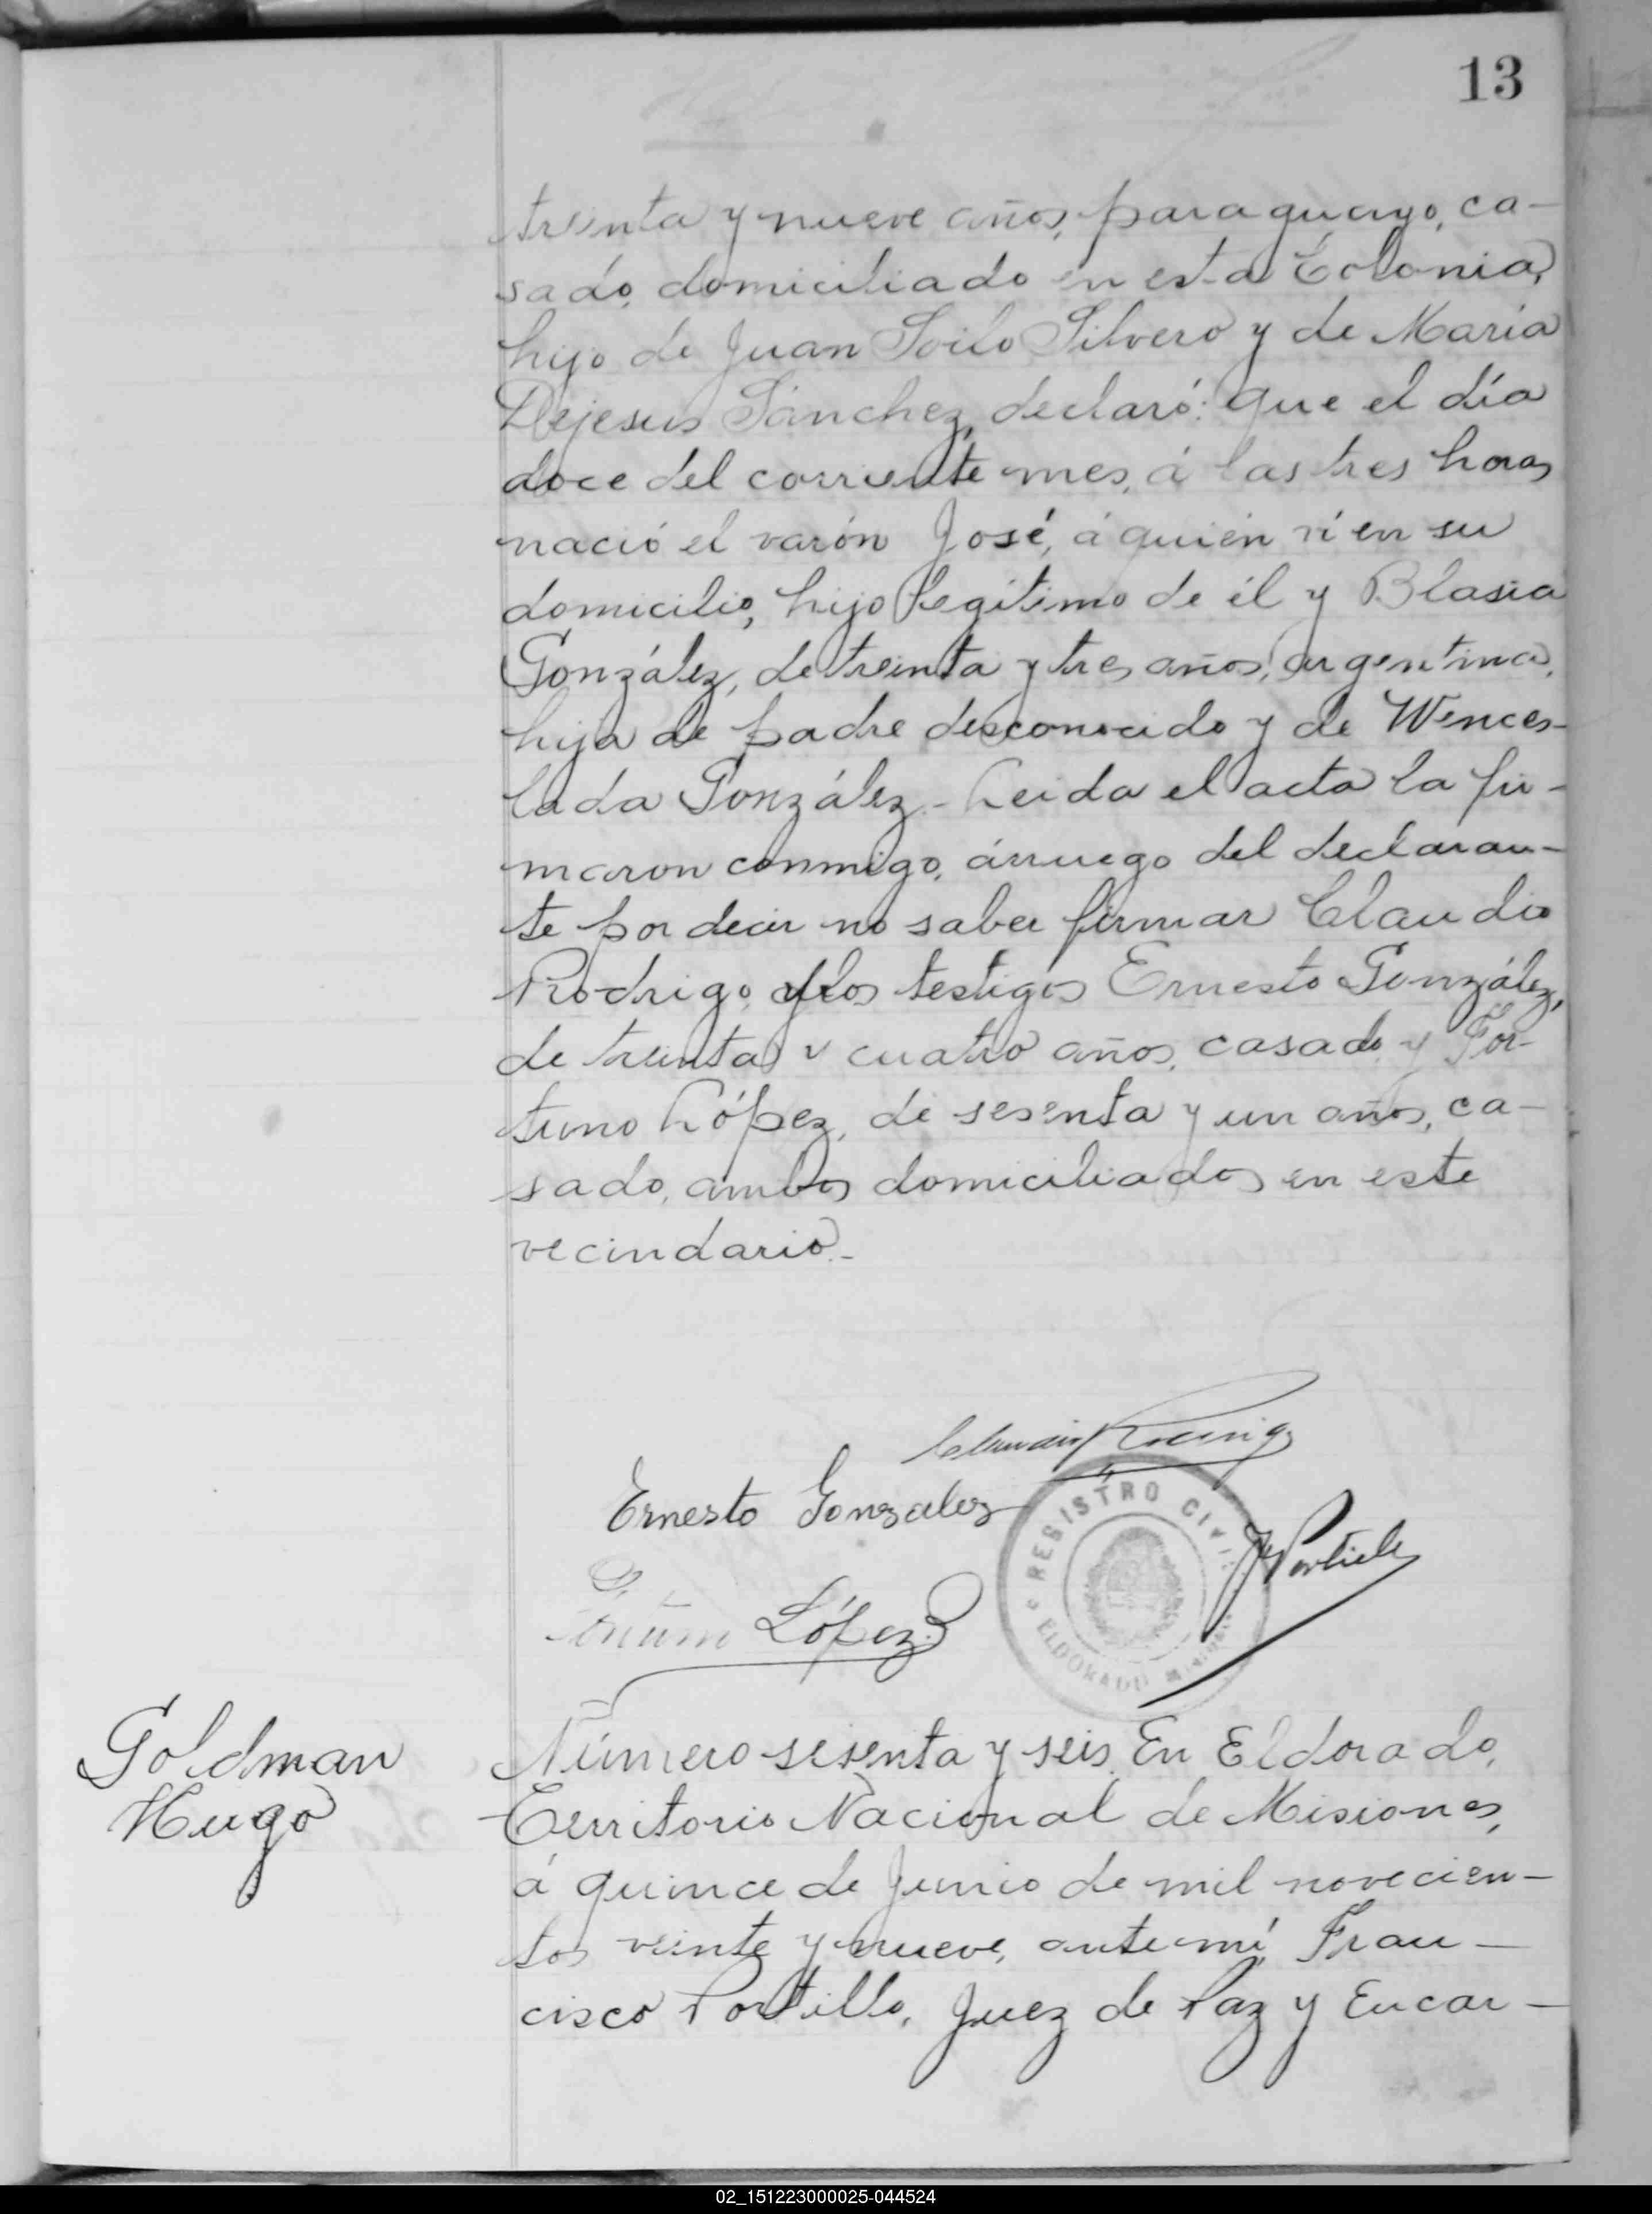 13
treinta y nueve años, paraguayo, ca-
sado, domiciliado en esta Colonia,
hijo de Juan Soilo Silvero y de María
Dejesus Sánchez, declaró: que el día
doce del corriente mes, á las tres horas
nació el varón José, á quién ví en su
domicilio, hijo legítimo de él y Blasia
González, de treinta y tres años, argentina,
hija de padre desconocido y de Wences-
lada González.- Leida el acta la fir-
maron conmigo, árruego del declaran-
te por decir no saber firmar Claudio
Rodrigo, y los testigos Ernesto González,
de treinta y cuatro años, casado y For-
tuno López, de sesenta y un años, ca-
sado, ambos domiciliados en este
vecindario.-
Ernesto Gonzalez
López
REGISTRO CIVIL
ELDORADO MISIONES
Goldman
Hugo
Número sesenta y seis. En Eldorado,
Territorio Nacional de Misiones,
á quince de Junio de mil novecien-
tos veinte y nueve, ante mí Fran-
cisco Portillo, Juez de Paz y Encar-
02_151223000025-044524